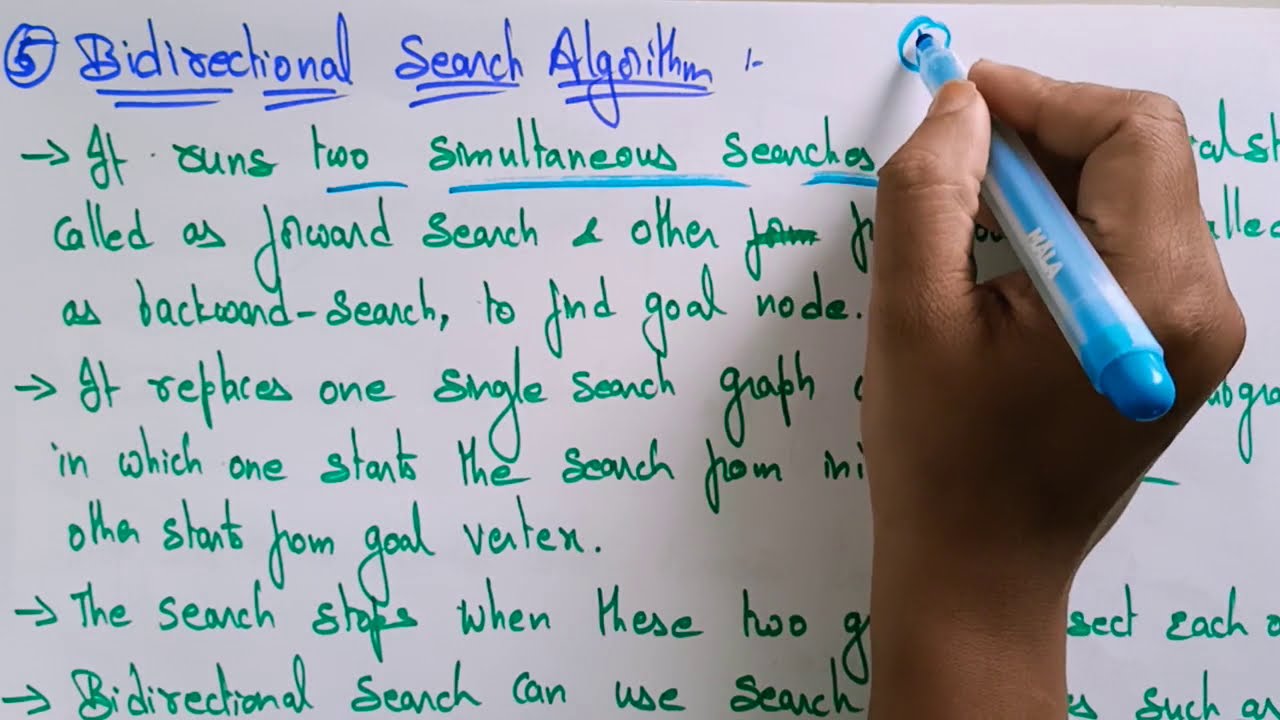 ⑤ Bidirectional Search Algorithm :-
→ It runs two simultaneous searches
called as forward search & other
as backward-search, to find goal node.
→ It replaces one single search graph
in which one starts the search from
other starts from goal vertex.
→ The search stops when these two each
→ Bidirectional search can use search such as
MALA